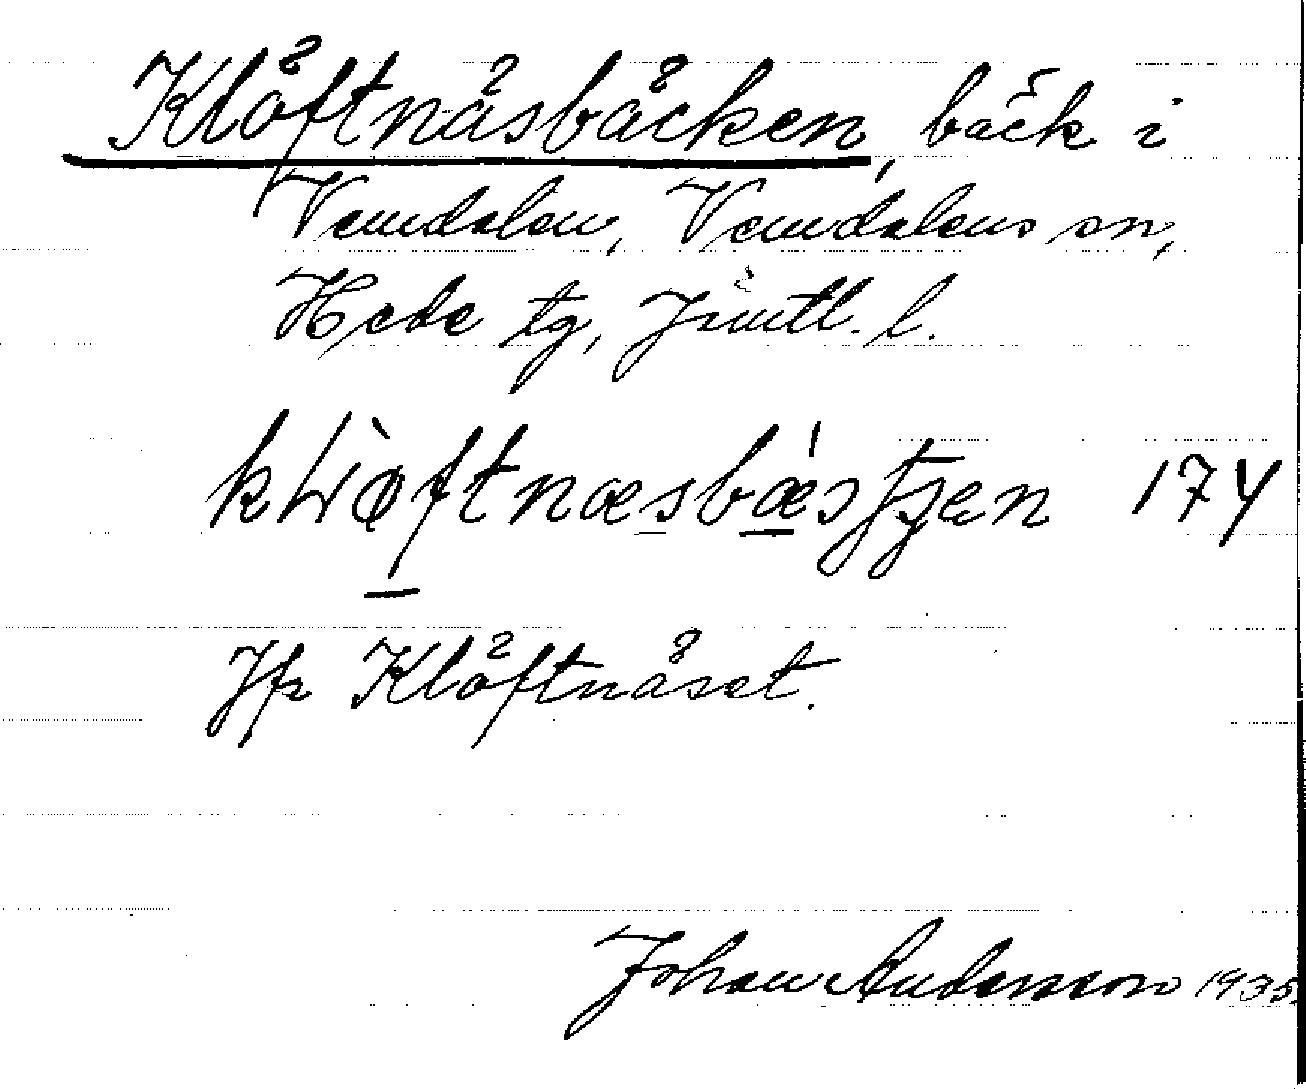 Klöftnäsbäcken, bäck i
Vemdalen, Vemdalens sn,
Hede tg, Jämtl. l.
174
Jfr Klöftnäset.
Johan Andersson 1935